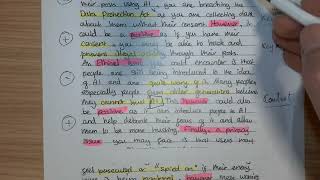 their posts using AI - you are breaching the
Data Protection Act as you are collecting data
about them without their consent. However, it
could be a positive as if you have their
consent - you may be able to hack and
prevent illegal through their posts.
An Ethical you could encounter is that
people are still being introduced to the idea
of AI and are quite wary of it. Many people
especially people from older generations believe
they cannot trust AI. This however could also
be positive as it can introduce people to AI
and help debunk their fears of it and allow
them to be more trusting. Finally, a privacy
issue you may face is that users may
feel persecuted or "spied on" if their
is being however these
Key
Context